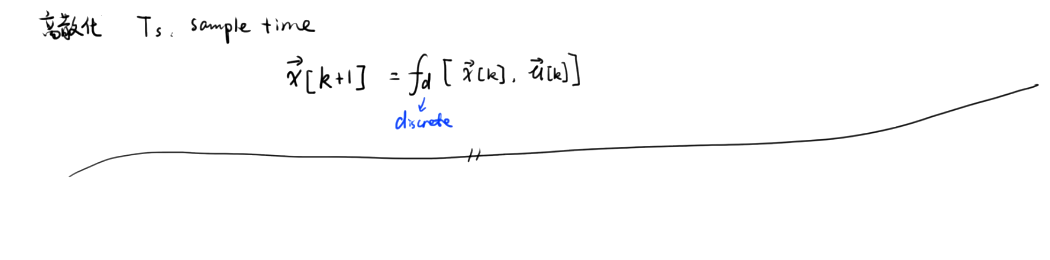 离散化 Ts. sample time
x⃗[k+1] = f_d [x⃗[k], u⃗[k]]
↓
discrete